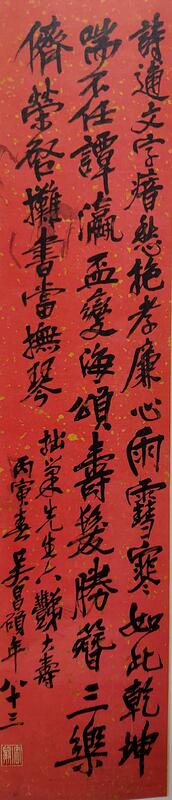 詩通文字瘖愁抱孝廉心雨雪寒如此乾坤
喘不任譚瀛盃變海頌壽髮勝簪三樂
儕榮啓攤書當撫琴
拙巢先生六豑大壽
丙寅春吳昌碩年八十三